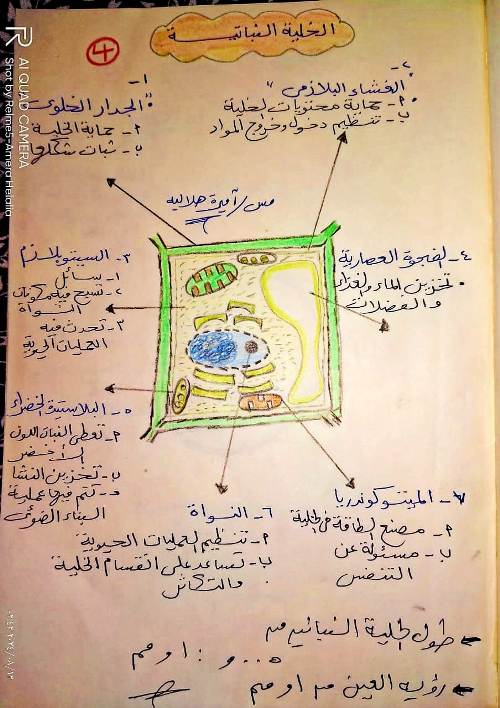 الخلية النباتية
٤
١-
"الجدار الخلوى"
٢- حماية الخلية
ب- ثبات شكلها
٢-
الغشاء البلازمى"
٢- حماية محتويات الخلية
ب- تنظيم دخول وخروج المواد
مس/ أميرة هلاليه
٣- السيتوبلازم
١- سائل
٢- تسبح فيه مكونات
النواة
٣- تحدث فيه
العمليات الحيوية
٤- الفجوة العصارية
• تخزين الماء والغذاء
والفضلات
٥- البلاستيدة الخضراء
٢- تعطى النبات اللون
الأخضر
ب- تخزين النشا
د- تتم فيها عملية
البناء الضوئى
٦- النواة
٢- تنظيم العمليات الحيوية
ب- تساعد على انقسام الخلية
والتكاثر
٧- الميتوكوندريا
٢- مصنع الطاقة فى الخلية
ب- مسئولة عن
التنفس
طول الخلية النباتيه من
٠٫٠٠٥ : ٠٫١ مم
رؤيه العين من ٠٫١ مم
AI QUAD CAMERA
Shot by Relme5-Amera Helalia